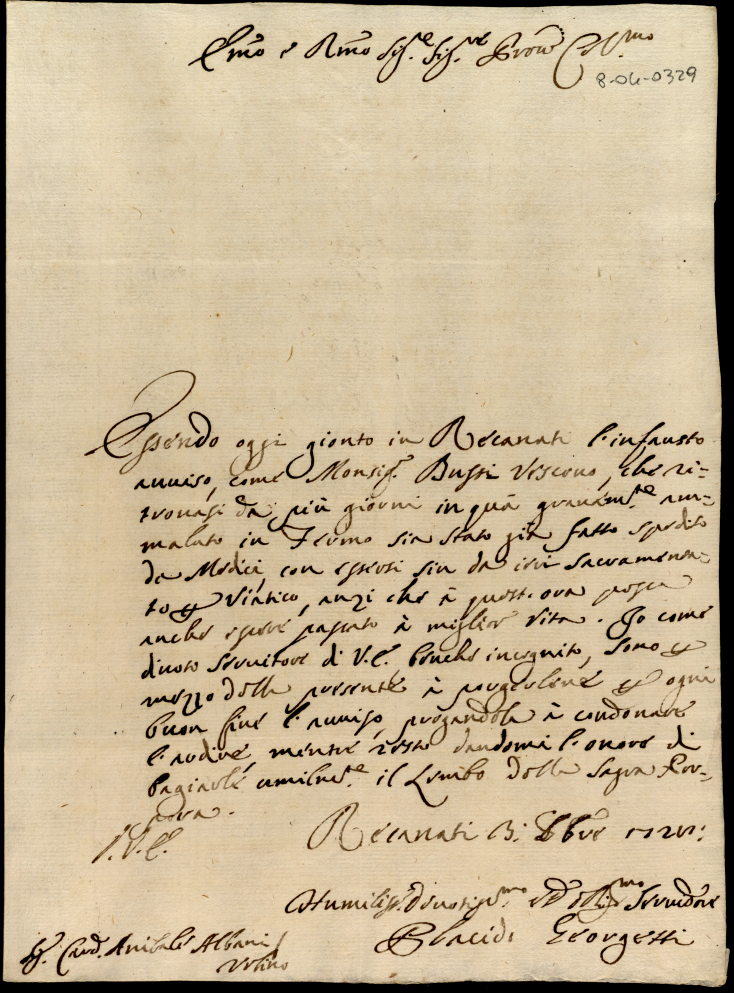 Em̃o e Rm̃o Sig.re Sig.re Pron̄e Col.mo
8-04-0329
Essendo oggi gionto in Recanati l'infausto
auuiso, come Monsig.r Bussi Vescouo, che ri=
trouasi da più giorni in quà grauam.te am=
malato in Fermo sia stato già fatto spedito
da Medici, con essersi sin da ieri Sacramenta=
to Viatico, anzi che à quest'ora possa
anche essere passato à miglior vita. Io come
diuoto Seruitore di V.E. benche incognito, sono
mezzo della presente à porgerlene ogni
buon fine l'auuiso, pregandola à condonare
l'ardire, mentre resto dandomi l'onore di
bagiarle umilm.te il Lembo della Sagra Por=
pora.
V.E.
Recanati 3: 
Humiliss. Deuotiss.mo ed Oblig.mo Seruidore
Placido Georgetti
S. Card. Anibale Albani
Urbino